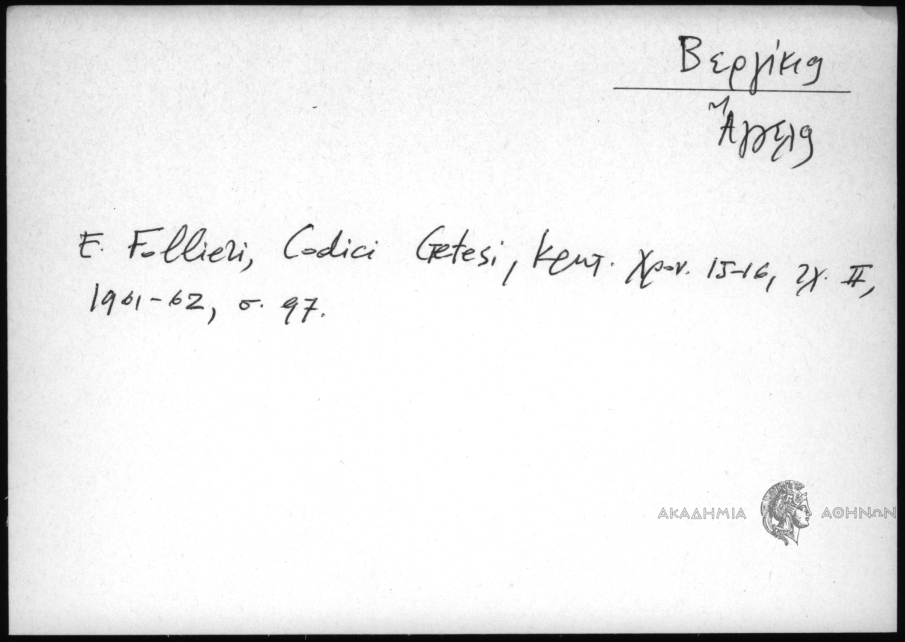 Βεργίκιος
Ἄγγελος
E. Follieri, Codici Cretesi, Κρητ. Χρον. 15-16, τχ. II,
1961-62, σ. 97.
ΑΚΑΔΗΜΙΑ ΑΘΗΝΩΝ